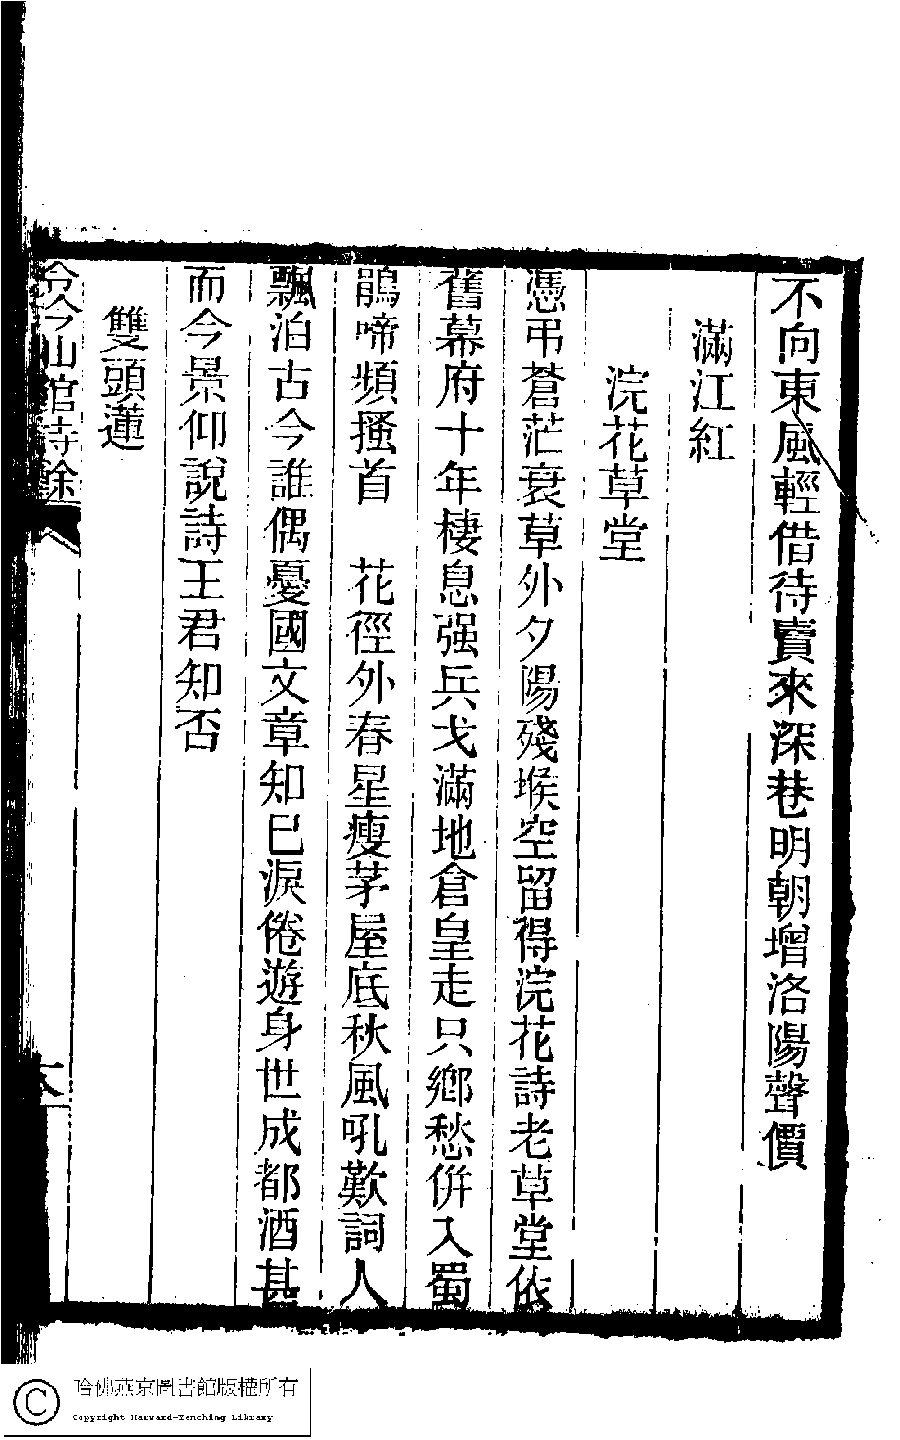 不向東風輕借待賣來深巷明朝增洛陽聲價
滿江紅
浣花草堂
憑弔蒼茫衰草外夕陽殘堠空留得浣花詩老草堂依
舊幕府十年棲息强兵戈滿地倉皇走只鄉愁併入蜀
鵑啼頻搔首　花徑外春星瘦茅屋底秋風吼歎詞人
飄泊古今誰偶憂國文章知已淚倦遊身世成都酒甚
而今景仰說詩王君知否
雙頭蓮
山館詩餘
哈佛燕京圖書館版權所有
Copyright Harvard-Yenching Library